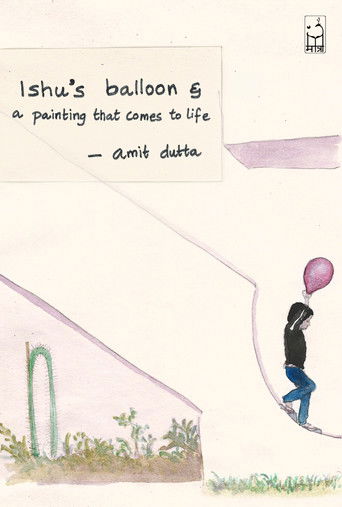 मात्रा
Ishu's balloon &
a painting that comes to life
— amit dutta